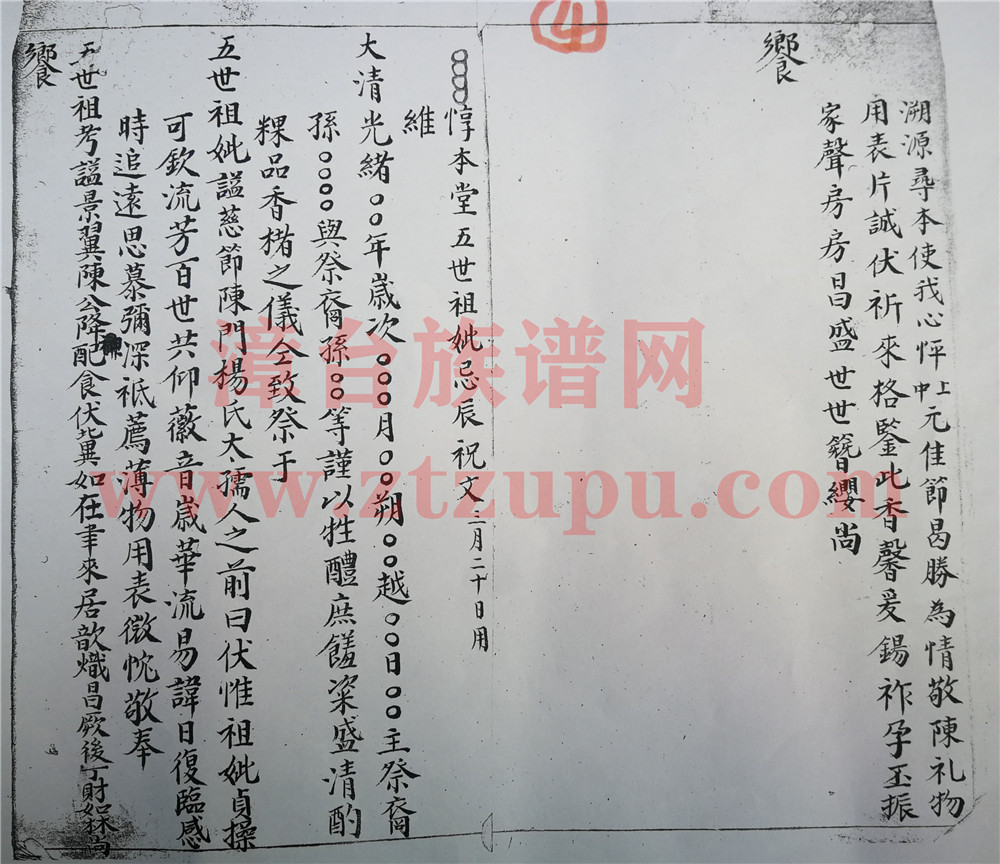 ④
溯源尋本使我心怦上中元佳節曷勝為情敬陳礼物
用表片誠伏祈來格鑒此香馨爰錫祚孕玉振
家聲房房昌盛世世簪纓尚
饗
惇本堂五世祖妣忌辰祝文 二月二十日用
維
大清光緒○○年歲次○○○月○○朔○○越○○日○○主祭裔
孫○○○○與祭裔孫○○等謹以牲醴庶饈粢盛清酌
粿品香楮之儀仝致祭于
五世祖妣謚慈節陳門楊氏大孺人之前曰伏惟祖妣貞操
可欽流芳百世共仰徽音歲華流易諱日復臨感
時追遠思慕彌深祇薦薄物用表微忱敬奉
五世祖考謚景翼陳公降配食伏冀如在聿來居歆熾昌厥後丁財如林尚
饗
漳台族谱网
www.ztzupu.com